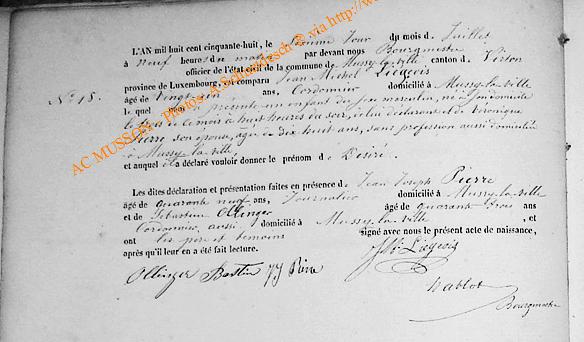 L'AN mil huit cent cinquante-huit, le jour du mois de Juillet
à neuf heures du matin par devant nous Bourgmestre
officier de l'état civil de la commune de Mussy-la-ville canton de Virton
province de Luxembourg, est comparu Jean Michel Liégeois
N° 18.
âgé de vingt six ans, Cordonnier domicilié à Mussy-la-ville
le quel nous a présenté un enfant du sexe masculin, né à son domicile
de ce mois à huit heures du soir, de lui déclarant et de Véronique
Pierre son épouse, âgée de dix huit ans, sans profession aussi domiciliée
à Mussy-la-ville
et auquel il a déclaré vouloir donner le prénom de Désiré.
Les dites déclaration et présentation faites en présence de Jean Joseph Pierre
âgé de quarante neuf ans, Journalier domicilié à Mussy-la-ville
et de Sébastien Ollinger âgé de quarante trois ans
Cordonnier, aussi domicilié à Mussy-la-ville, et
ont les père et témoins signé avec nous le présent acte de naissance,
après qu'il leur en a été fait lecture.
JM Liégeois
Ollinger Bastien JJ Pierre
Bourgmestre
AC MUSSON Photos: A. Schmitz © via http://w